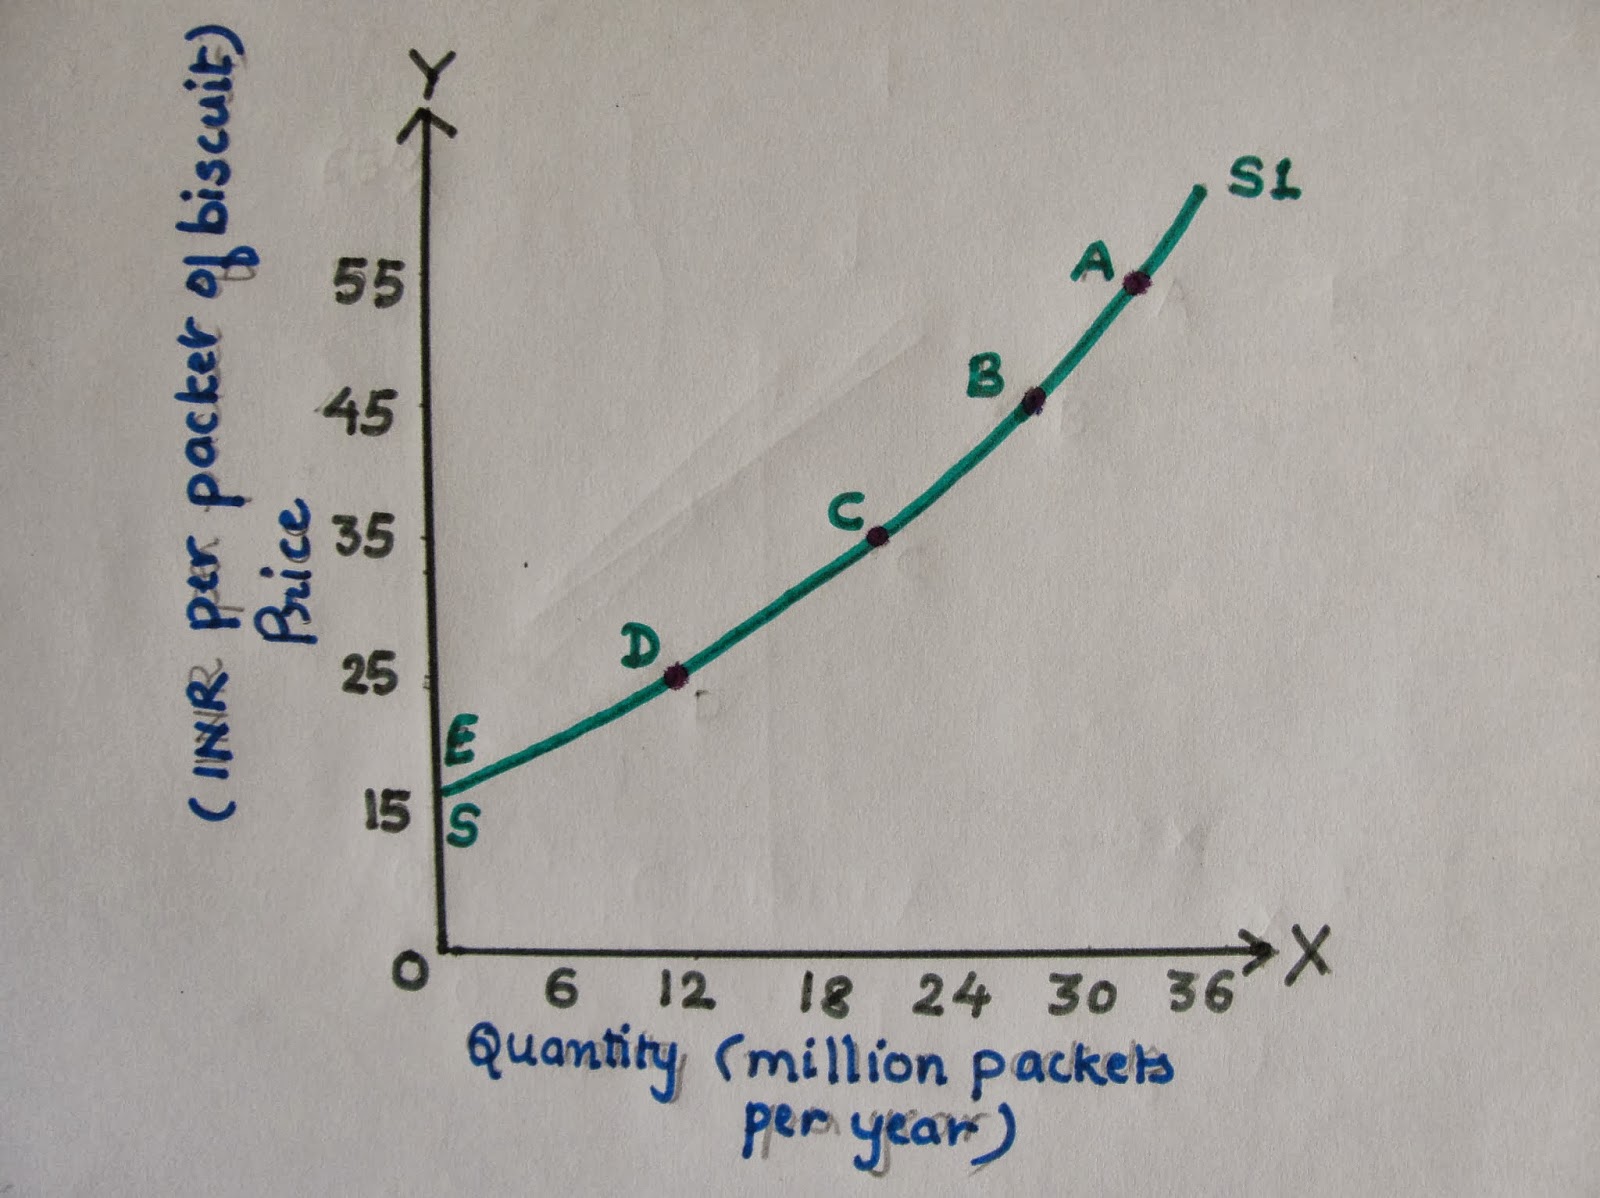 Y
(INR per packet of biscuit)
Price
55
45
35
25
15
0
S1
A
B
C
D
E
S
6 12 18 24 30 36
X
Quantity (million packets
per year)